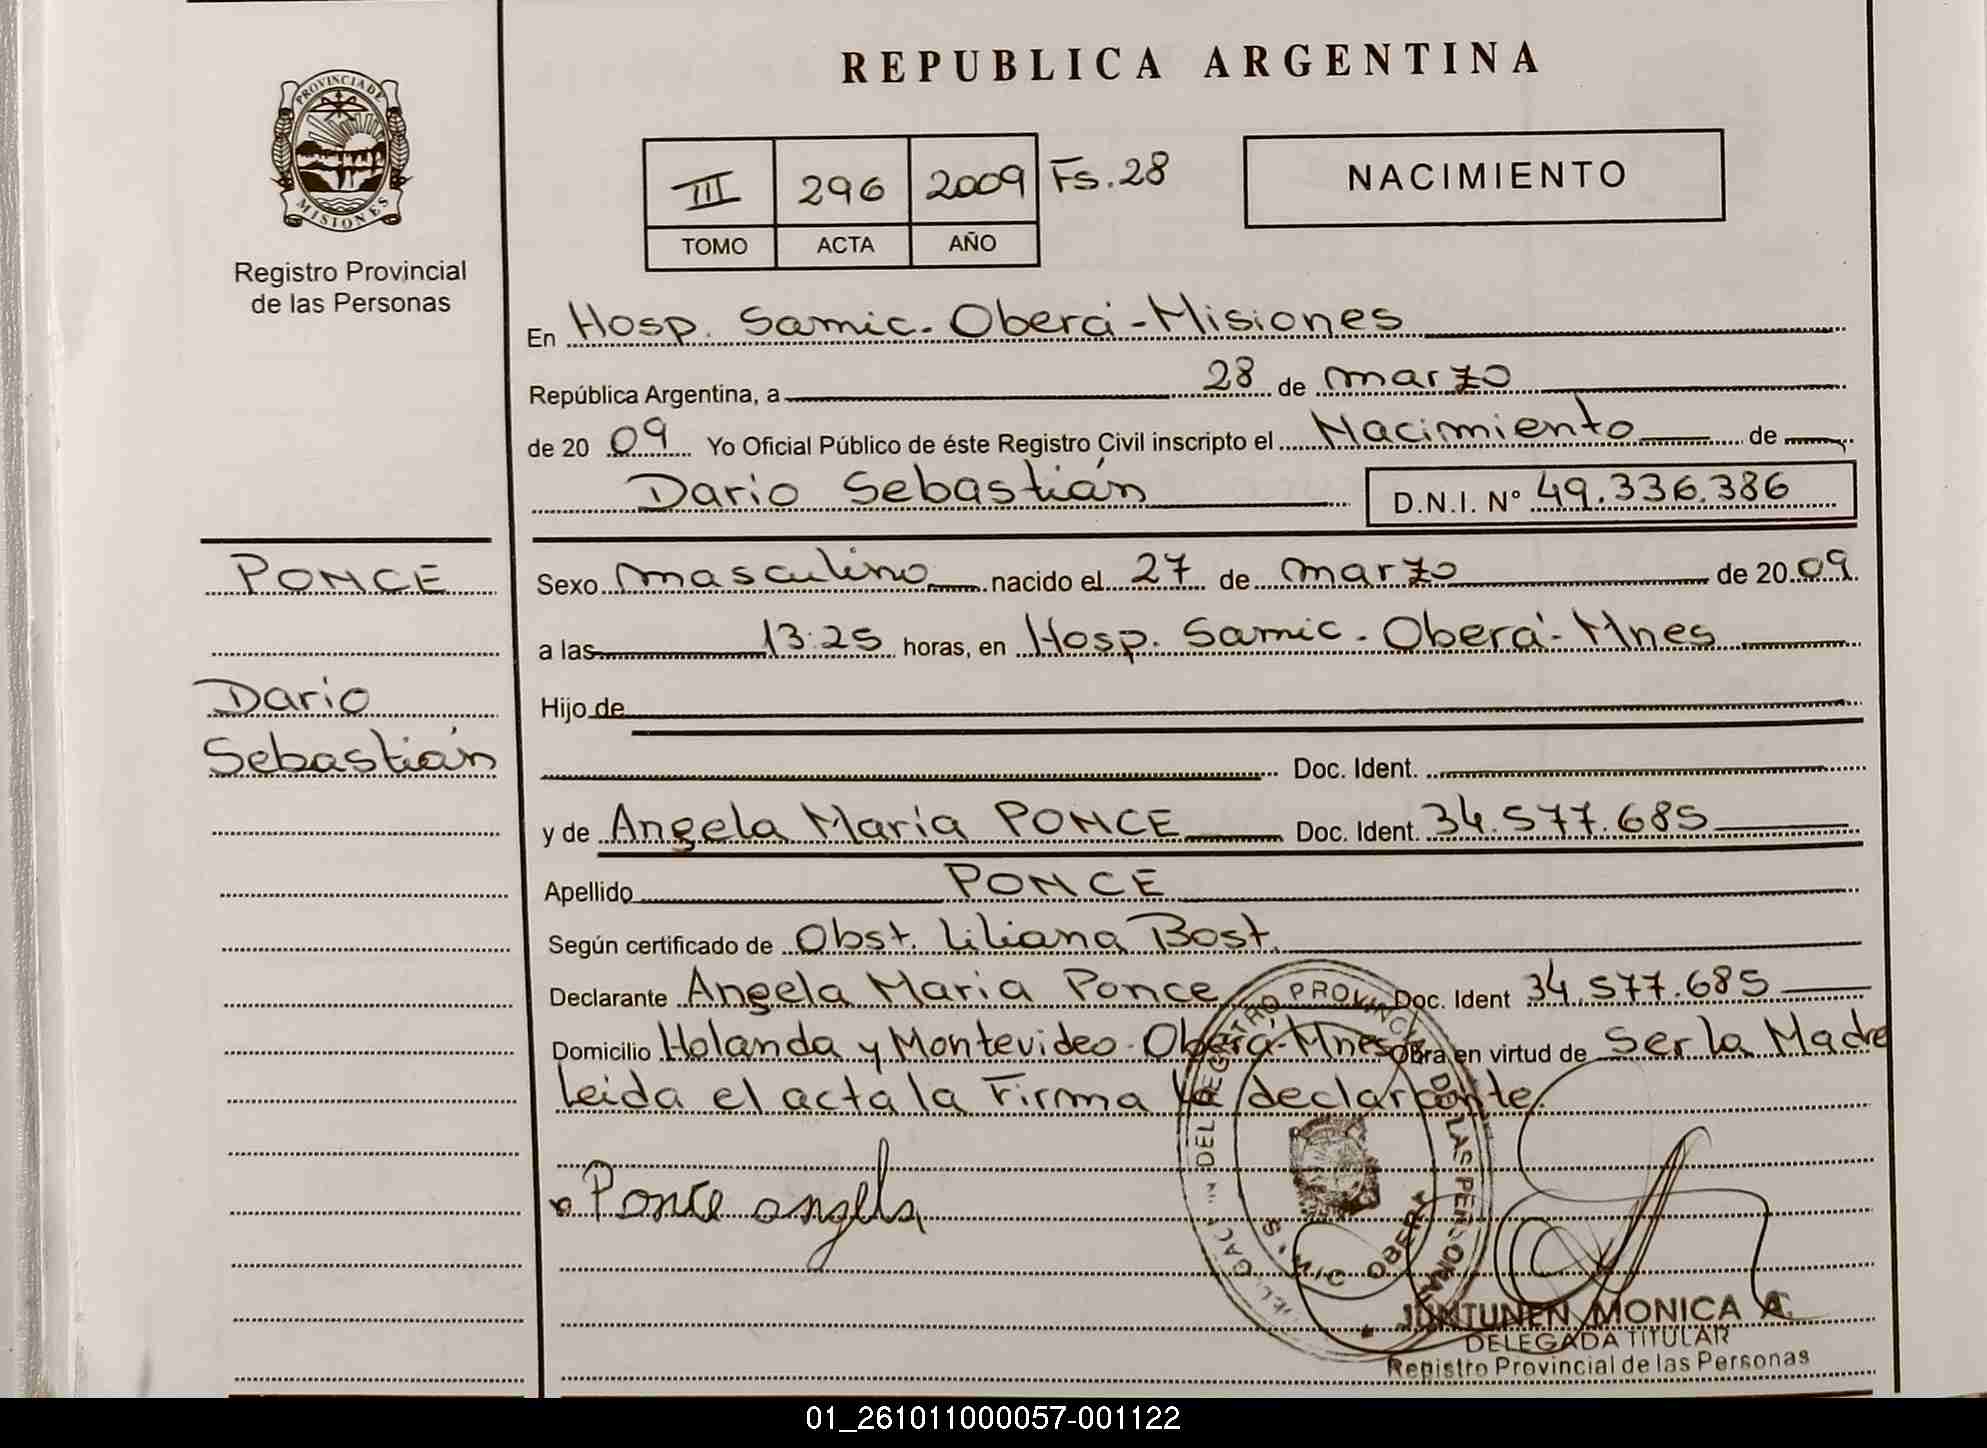 PROVINCIA DE
MISIONES
Registro Provincial
de las Personas
REPUBLICA ARGENTINA
III 296 2009 Fs. 28
TOMO ACTA AÑO
NACIMIENTO
En Hosp. Samic. Oberá - Misiones
República Argentina, a 28 de marzo
de 20 09 Yo Oficial Público de éste Registro Civil inscripto el Nacimiento de
Dario Sebastián D.N.I. Nº 49.336.386
PONCE
Dario
Sebastián
Sexo masculino nacido el 27 de marzo de 20 09
a las 13:25 horas, en Hosp. Samic. Oberá - Mnes
Hijo de
Doc. Ident.
y de Angela María PONCE Doc. Ident. 34.577.685
Apellido PONCE
Según certificado de Obst. Liliana Bost.
Declarante Angela Maria Ponce Doc. Ident 34.577.685
Domicilio Holanda y Montevideo - Oberá - Mnes Obra en virtud de Ser la Madre
Leida el acta la Firma la declarante.
Ponce angela
REGISTRO PROVINCIAL DE LAS PERSONAS
OBERA
JUNTUNEN MONICA A.
DELEGADA TITULAR
Registro Provincial de las Personas
01_261011000057-001122